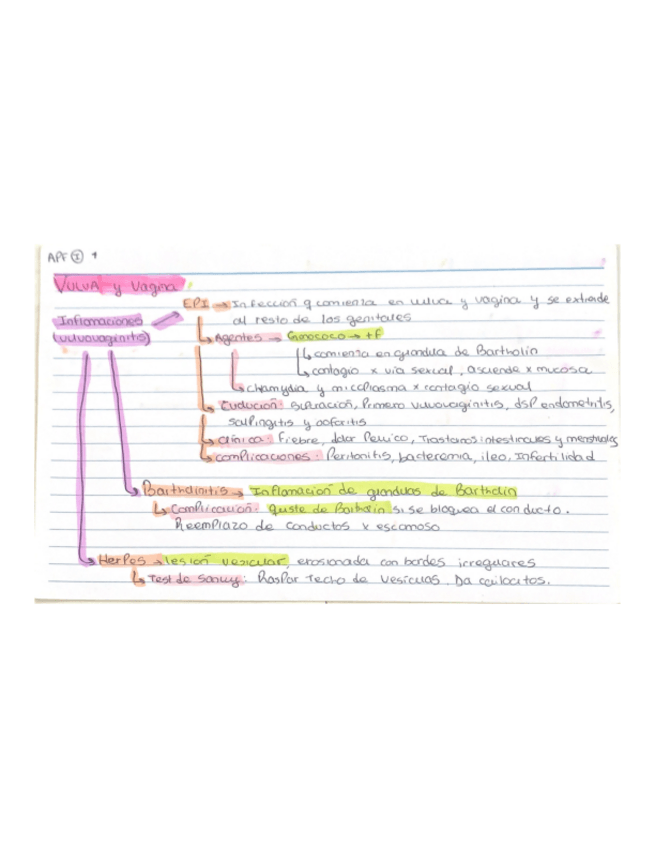 APF ① 1
Vulva y Vagina
EPI → Infección q comienza en vulva y vagina y se extiende
Inflamaciones al resto de los genitales
(vulvovaginitis) Agentes → Gonococo → +f
comienza en glandula de Bartholin
contagio x via sexual, asciende x mucosa
Chamydia y micoplasma x contagio sexual
Evolución: supuración, Primero vulvovaginitis, dsp endometritis,
salpingitis y ooforitis
Clinica: Fiebre, dolor Pelvico, Trastornos intestinales y menstruales
complicaciones: Peritonitis, bacteremia, ileo, Infertilidad
Bartholinitis → Inflamación de glandulas de Bartholin
Complicación: Quiste de Bartholin si se bloquea el conducto.
Reemplazo de conductos x escamoso
Herpes → lesion vesicular, erosionada con bordes irregulares
Test de : Raspar Techo de vesiculas. Da coilocitos.